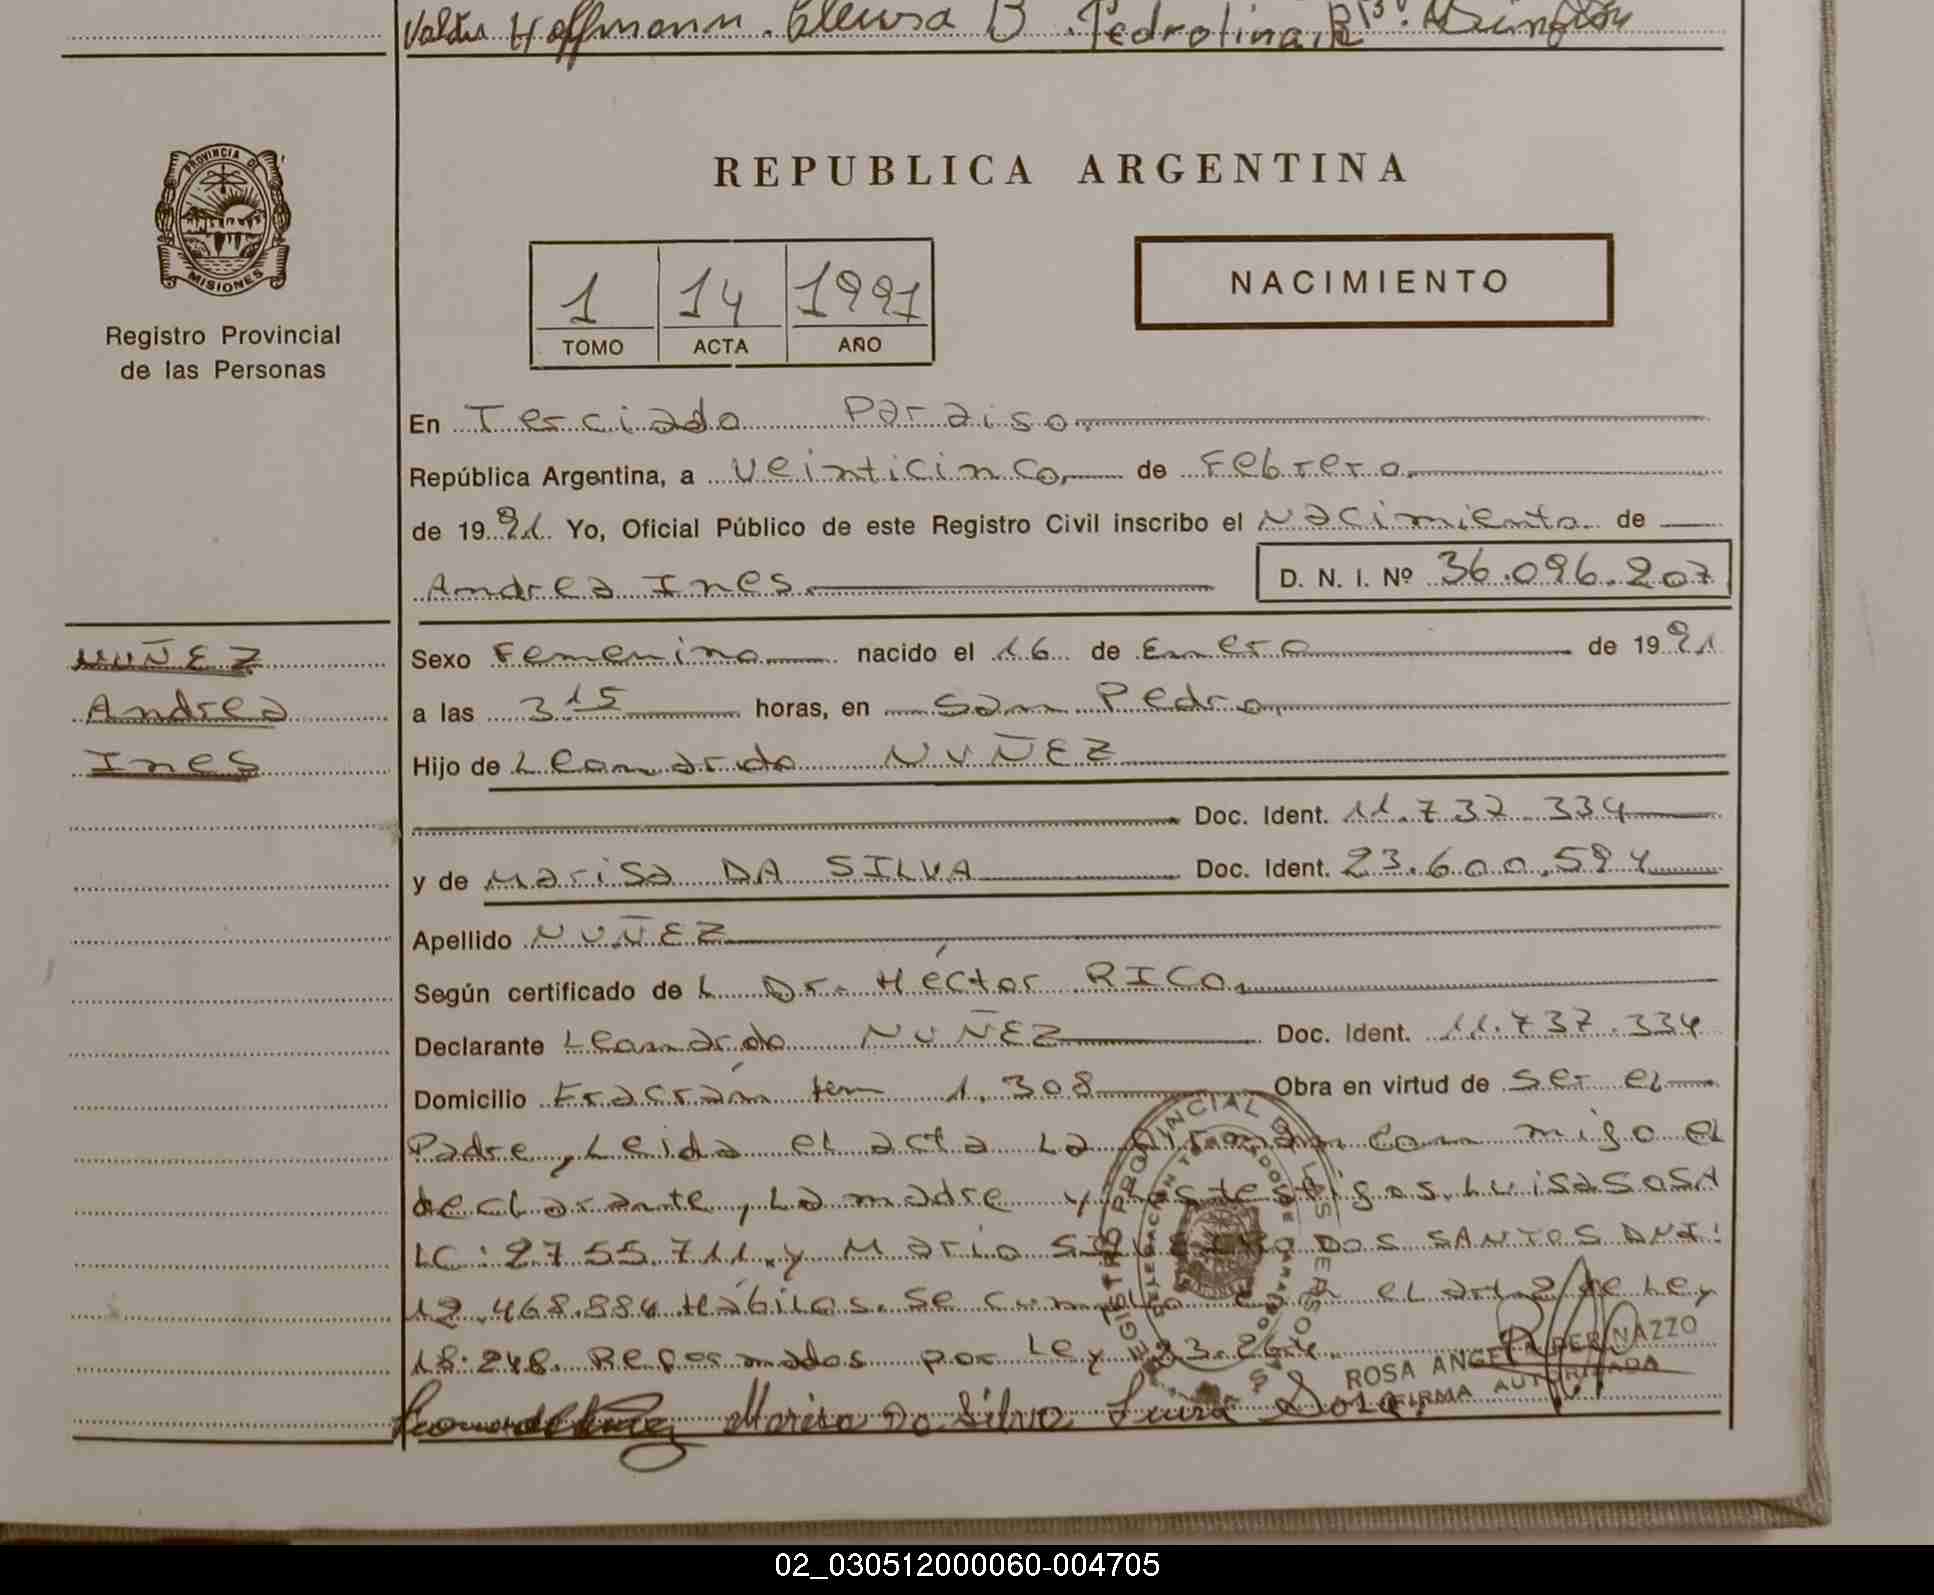 Valdir Hoffmann. Cleusa B. Pedrolina R
PROVINCIA DE
MISIONES
Registro Provincial
de las Personas
REPUBLICA ARGENTINA
1 14 1991
TOMO ACTA AÑO
NACIMIENTO
En Terciado Paraiso
República Argentina, a veinticinco, de Febrero
de 1991. Yo, Oficial Público de este Registro Civil inscribo el Nacimiento de
Andrea Ines
D. N. I. Nº 36.096.207
NUÑEZ
Andrea
Ines
Sexo Femenino nacido el 16 de Enero de 1991
a las 3 15 horas, en San Pedro,
Hijo de Leonardo NUÑEZ
Doc. Ident. 11.737.334
y de Marisa DA SILVA Doc. Ident. 23.600.594
Apellido NUÑEZ
Según certificado de L Dr. Héctor RICO,
Declarante Leonardo NUÑEZ Doc. Ident. 11.737.334
Domicilio Fracrán km 1.308 Obra en virtud de ser el
Padre, Leida el acta La firman con migo el
declarante, La madre y los testigos. Luisa SOSA
LC: 2755.711. y Mario DOS SANTOS DNI:
12.468.884 Hábiles. Se con el art 2 de Ley
18.248. Reformados por Ley 23.264.
ROSA ANGELA PERNAZZO
FIRMA AUTORIZADA
Marisa Da Silva Luisa Sosa
02_030512000060-004705